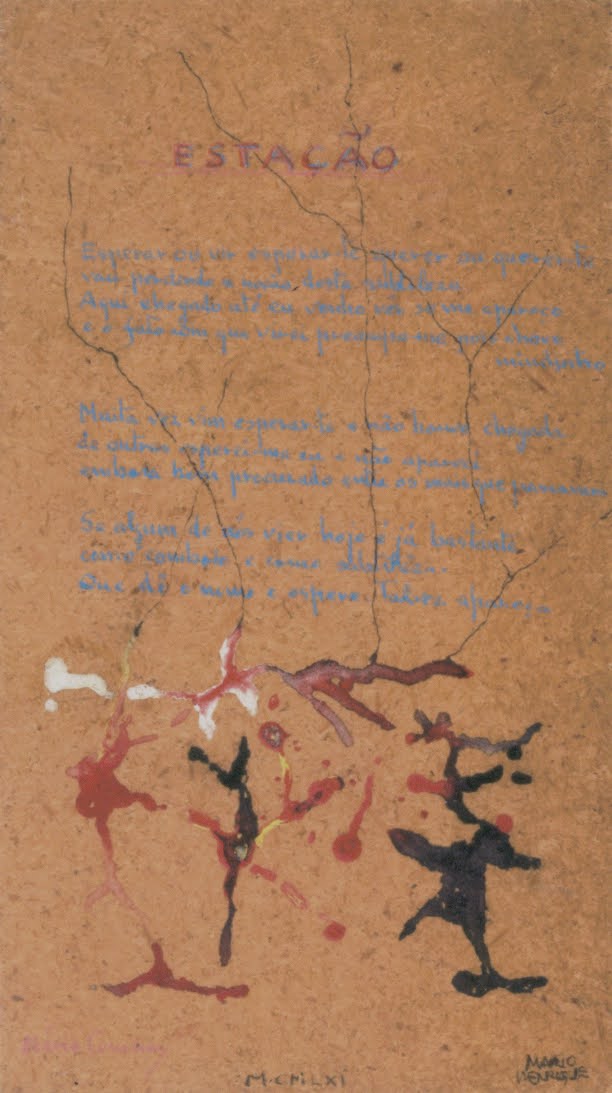 ESTAÇÃO
Esperar ou vir esperar-te querer ou querer-te
vou perdendo a noção desta subtileza
Aqui chegado até eu venho ver se me apareço
e o fato com que virei preocupa-me pois chove
miudinho
Muita vez vim esperar-te e não houve chegada
de outras esperei-me eu e não apareci
embora bem procurado entre os mais que passavam
Se algum de nós vier hoje é já bastante
como e como
Que dê o nome e espere. Talvez apareça.
MARIO
HENRIQUE